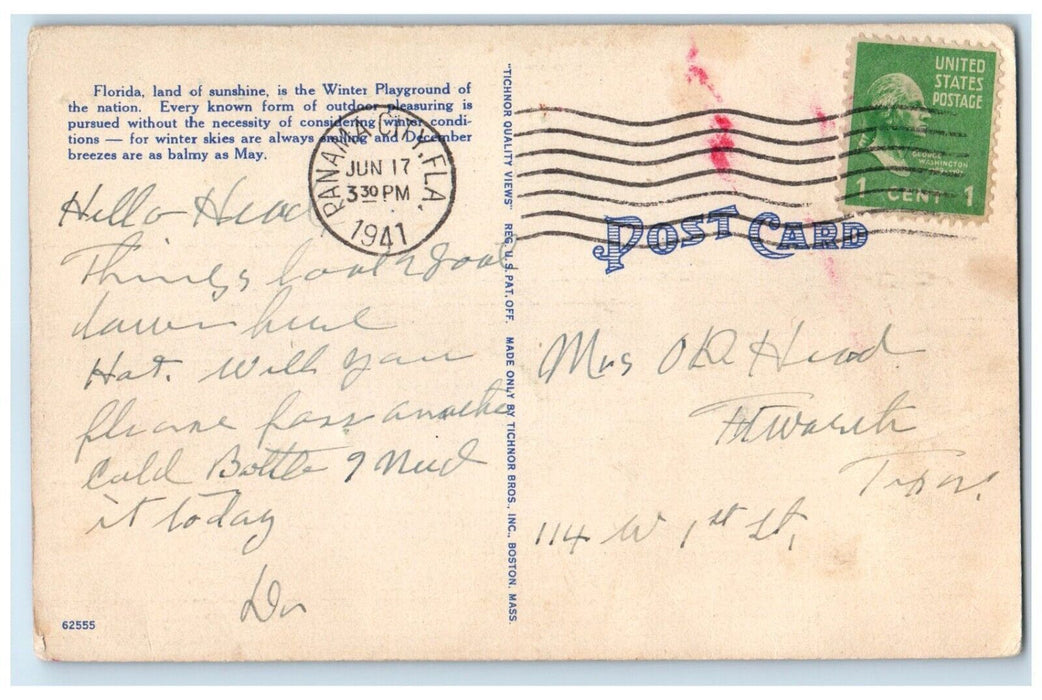 Florida, land of sunshine, is the Winter Playground of
the nation. Every known form of outdoor pleasuring is
pursued without the necessity of considering winter condi-
tions — for winter skies are always smiling and December
breezes are as balmy as May.
PANAMA CITY, FLA.
JUN 17
3 30 PM
1941
UNITED
STATES
POSTAGE
GEORGE
WASHINGTON
1 CENT 1
POST CARD
Hello Head
Things look good
down here
Hot. Will you
please pass another
cold Bottle I need
it today
62555
"TICHNOR QUALITY VIEWS" REG. U. S. PAT. OFF. MADE ONLY BY TICHNOR BROS., INC., BOSTON, MASS.
Mrs O D Head
Ft Worth
Texas
114 W 1st St,